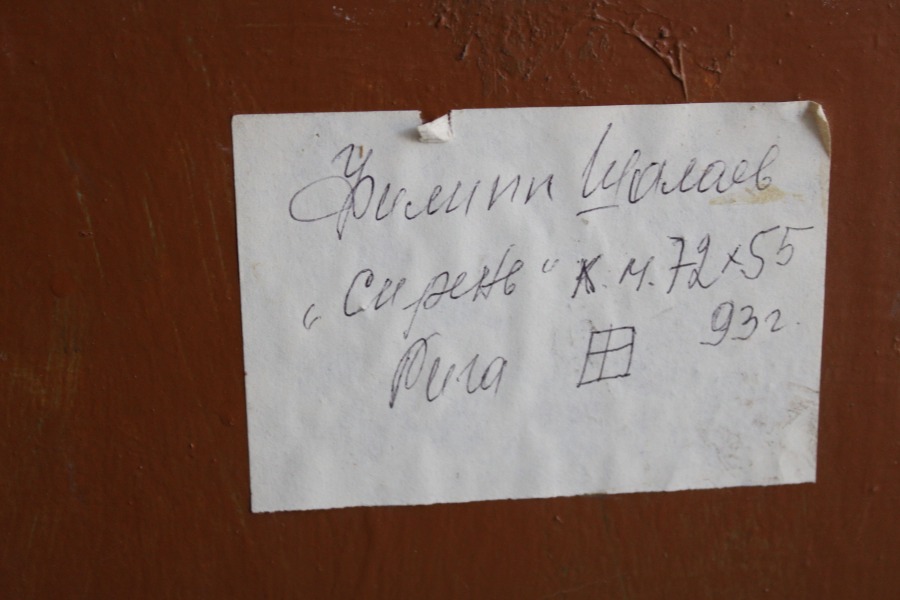 Филипп Шалаев
„Сирень“ к.м. 72×55
93г.
Рига